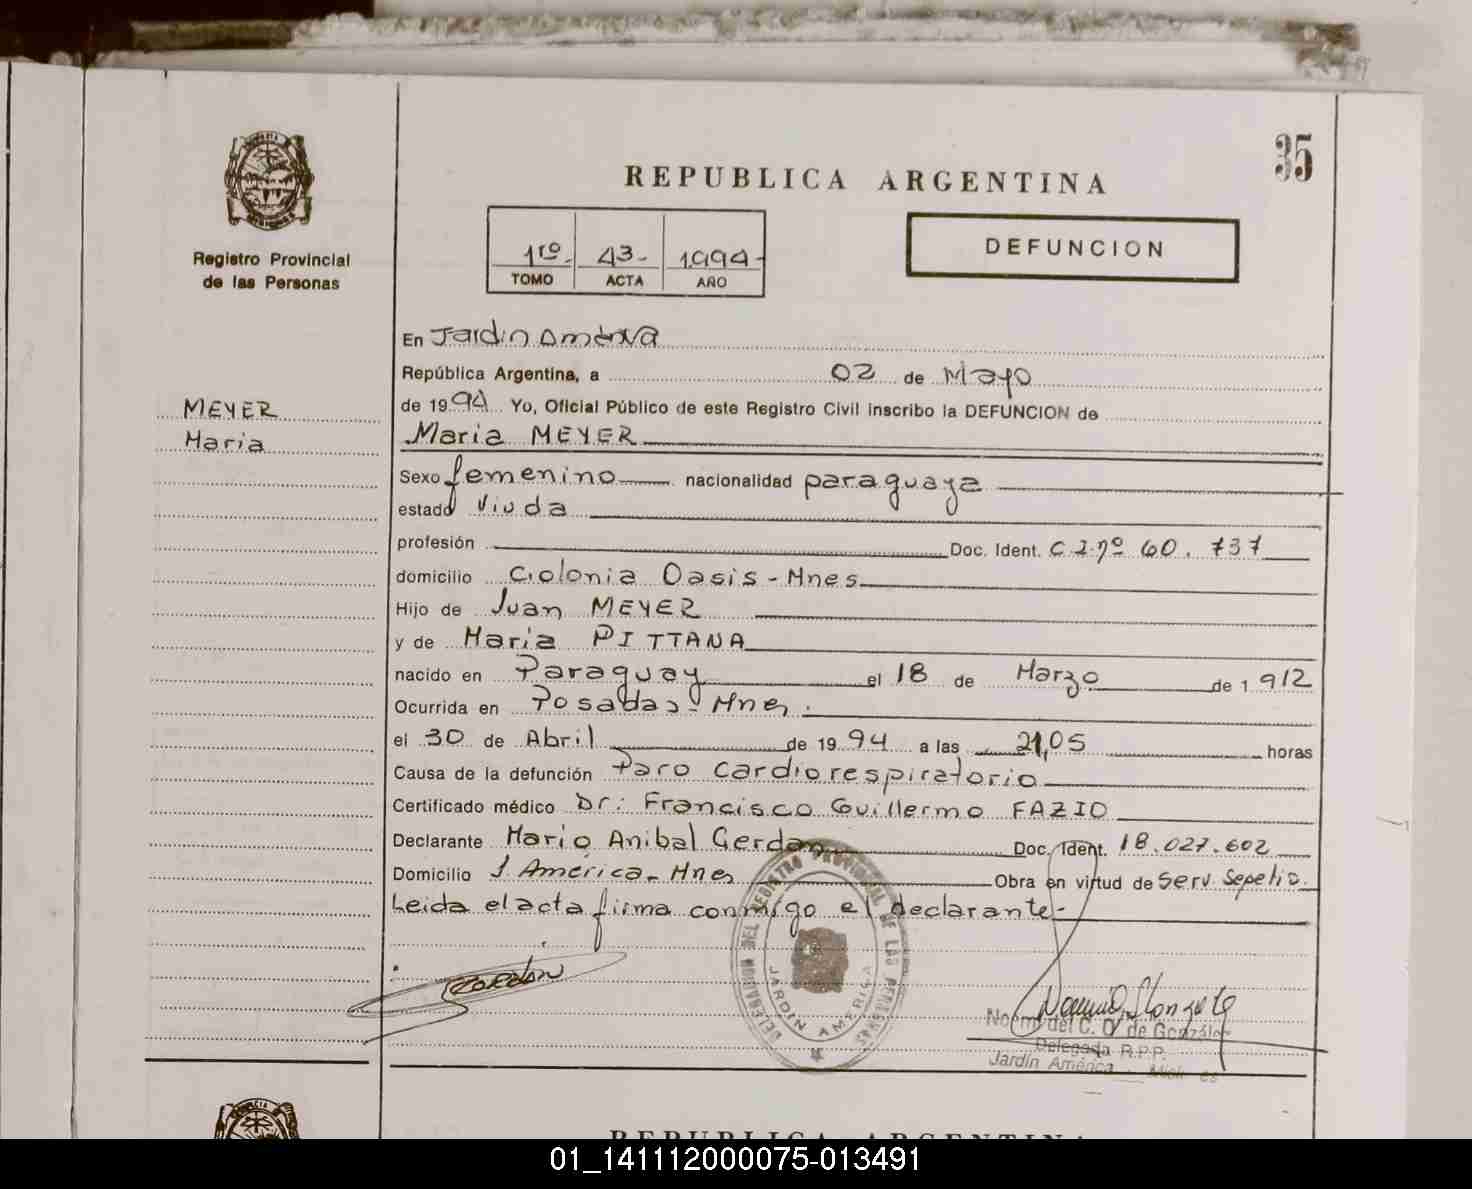 35
REPUBLICA ARGENTINA
Registro Provincial
de las Personas
1ro.- 43- 1994-
TOMO ACTA AÑO
DEFUNCION
En Jardin América
República Argentina, a 02 de Mayo
MEYER
Maria
de 1994 Yo, Oficial Público de este Registro Civil inscribo la DEFUNCION de
Maria MEYER
Sexo femenino nacionalidad paraguaya
estado Viuda
profesión Doc. Ident. C.I.nº 60.737
domicilio Colonia Oasis - Mnes
Hijo de Juan MEYER
y de Maria PITTANA
nacido en Paraguay el 18 de Marzo de 1912
Ocurrida en Posadas - Mnes.
el 30 de Abril de 1994 a las 21,05 horas
Causa de la defunción Paro Cardiorespiratorio
Certificado médico Dr: Francisco Guillermo FAZIO
Declarante Mario Anibal Cerdan Doc. Ident. 18.027.602
Domicilio J. América - Mnes Obra en virtud de Serv. Sepelio.
Leida el acta firma conmigo el declarante-
DELEGACION DEL REGISTRO PROVINCIAL DE LAS PERSONAS
JARDIN AMERICA
de González
Delegada R.P.P.
Jardín América
REPUBLICA ARGENTINA
01_141112000075-013491